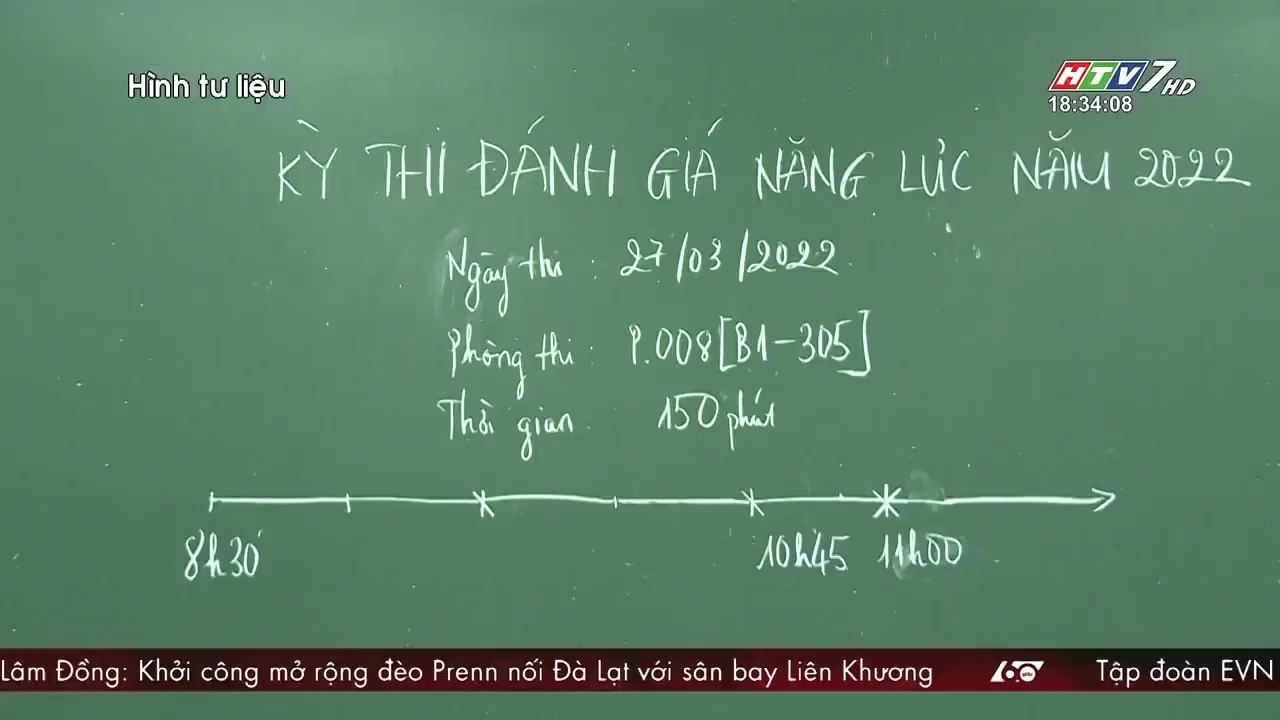 Hình tư liệu
HTV7 HD
18:34:08
KỲ THI ĐÁNH GIÁ NĂNG LỰC NĂM 2022
Ngày thi : 27/03/2022
Phòng thi : P.008[B1-305]
Thời gian : 150 phút
8h30'
10h45 11h00
Lâm Đồng: Khởi công mở rộng đèo Prenn nối Đà Lạt với sân bay Liên Khương 60 giây Tập đoàn EVN